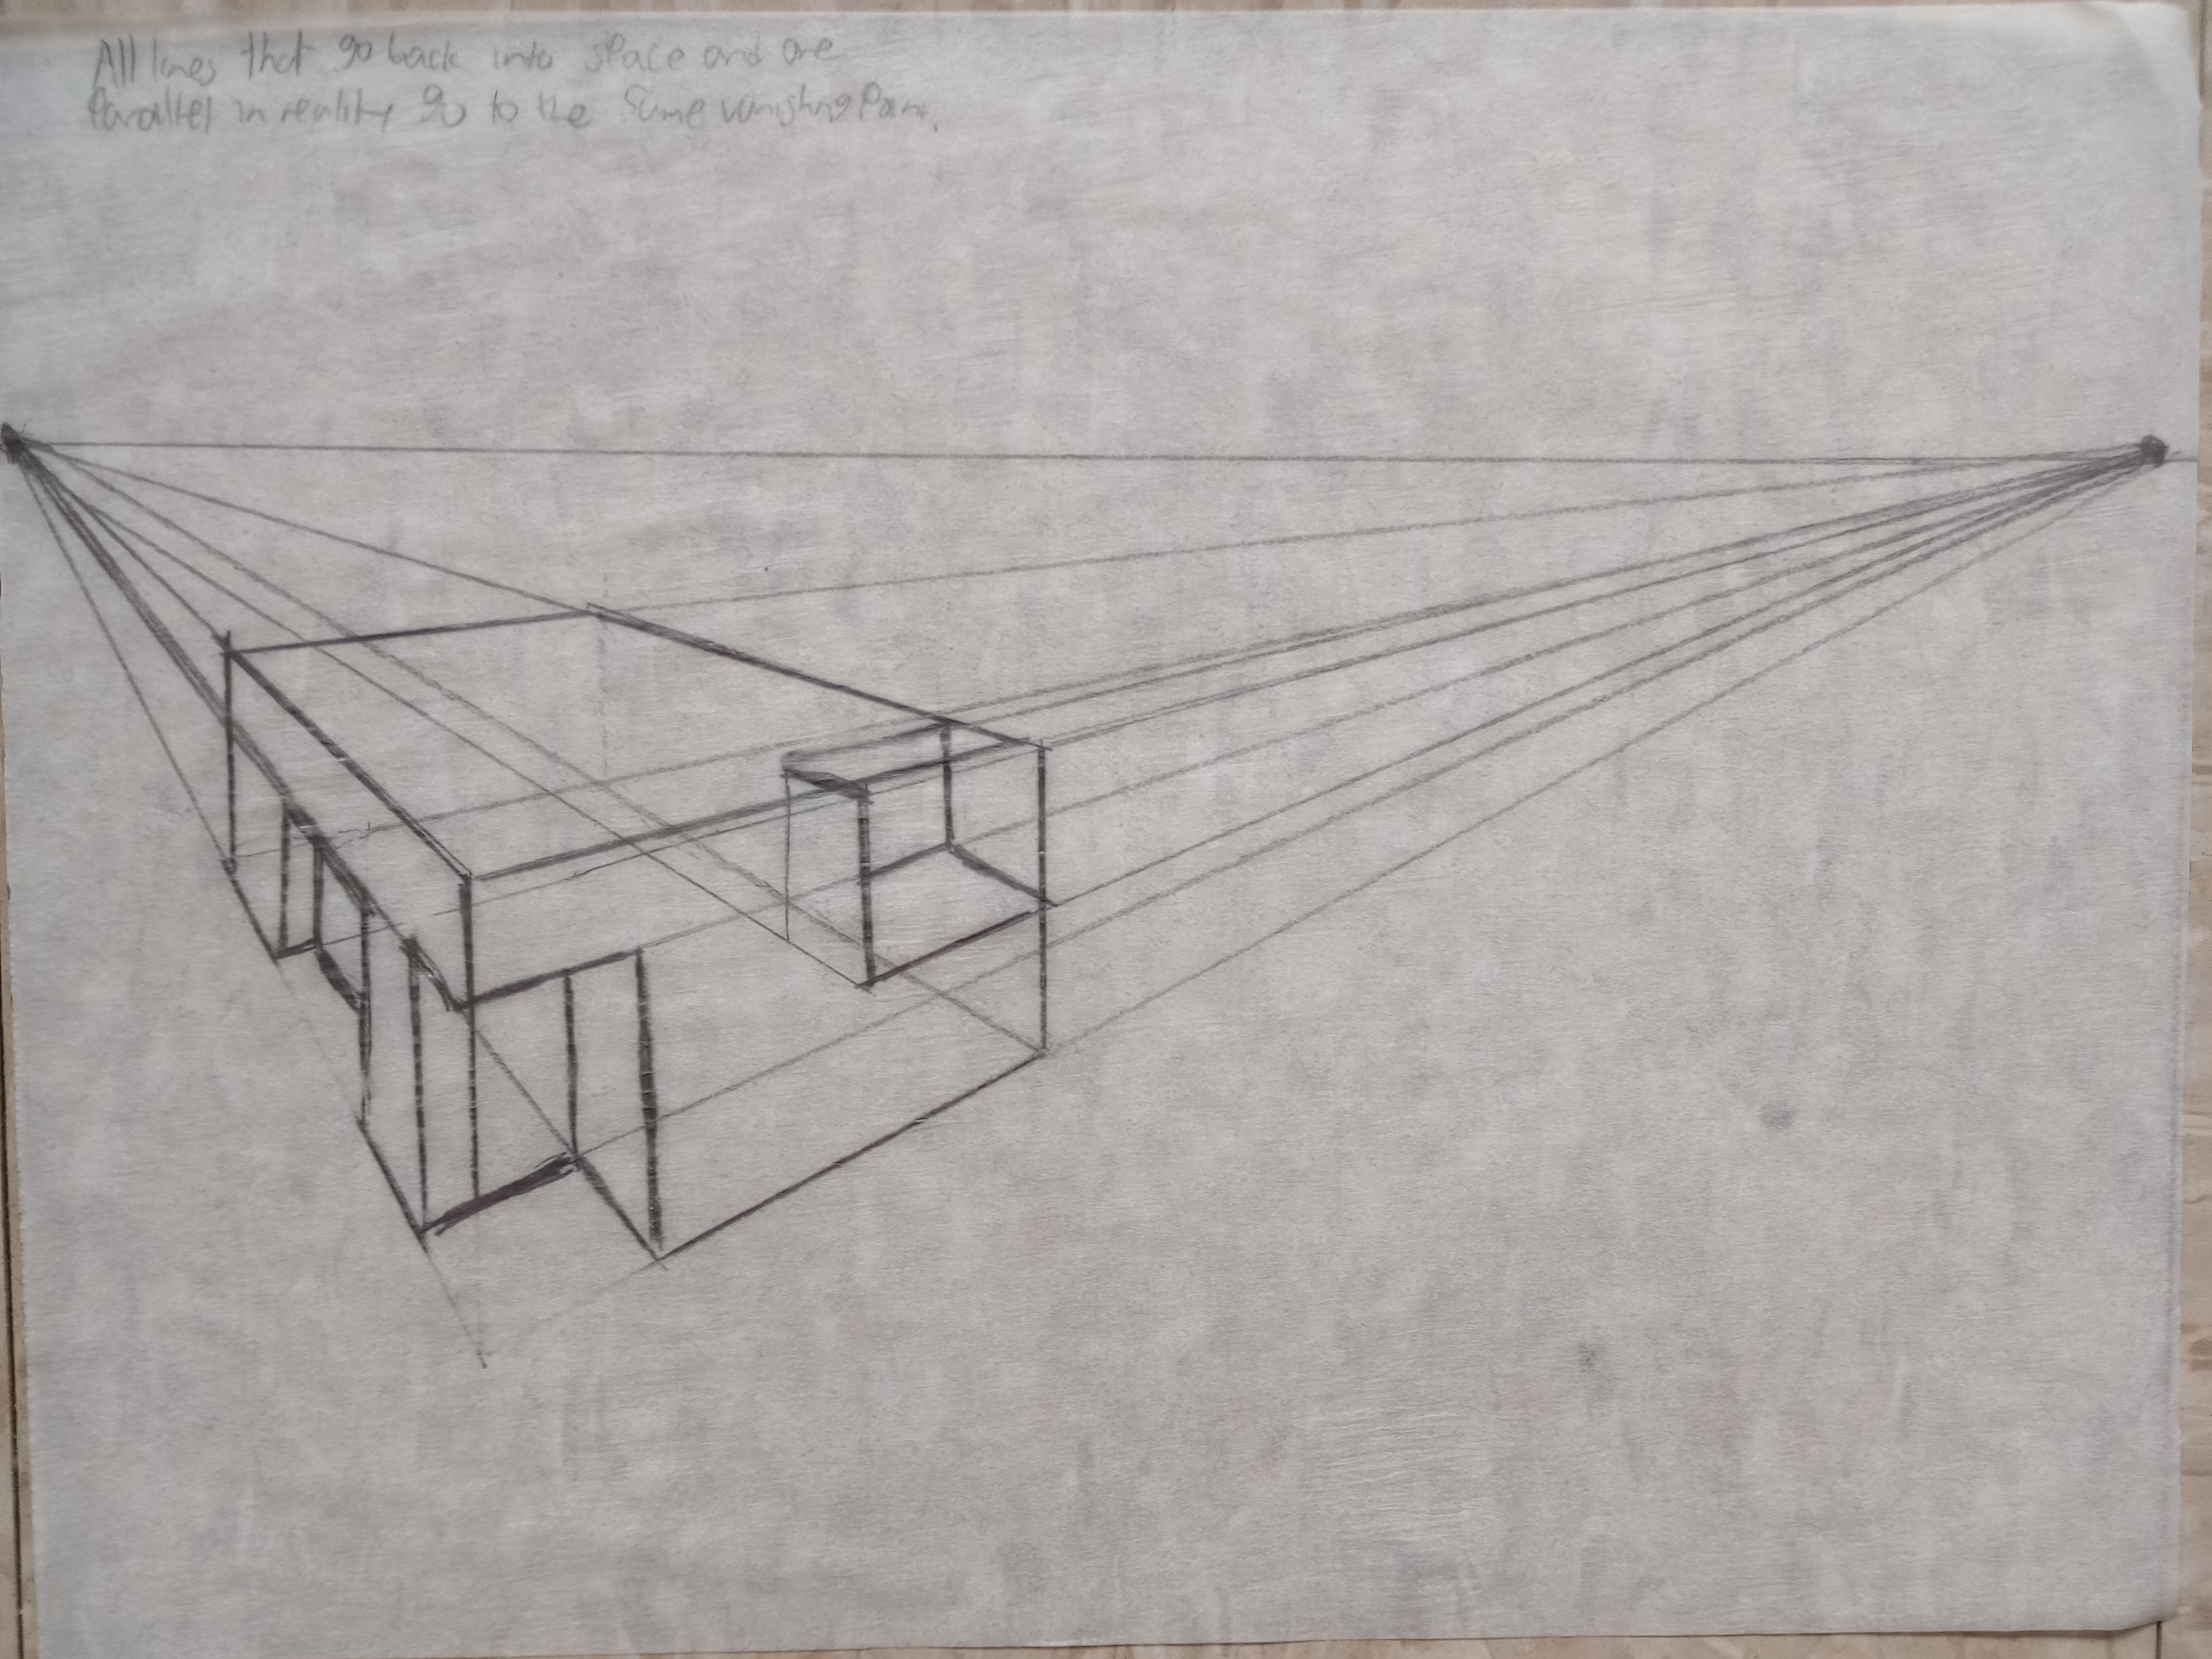 All lines that go back into space and are
Parallel in reality go to the same vanishing Point.